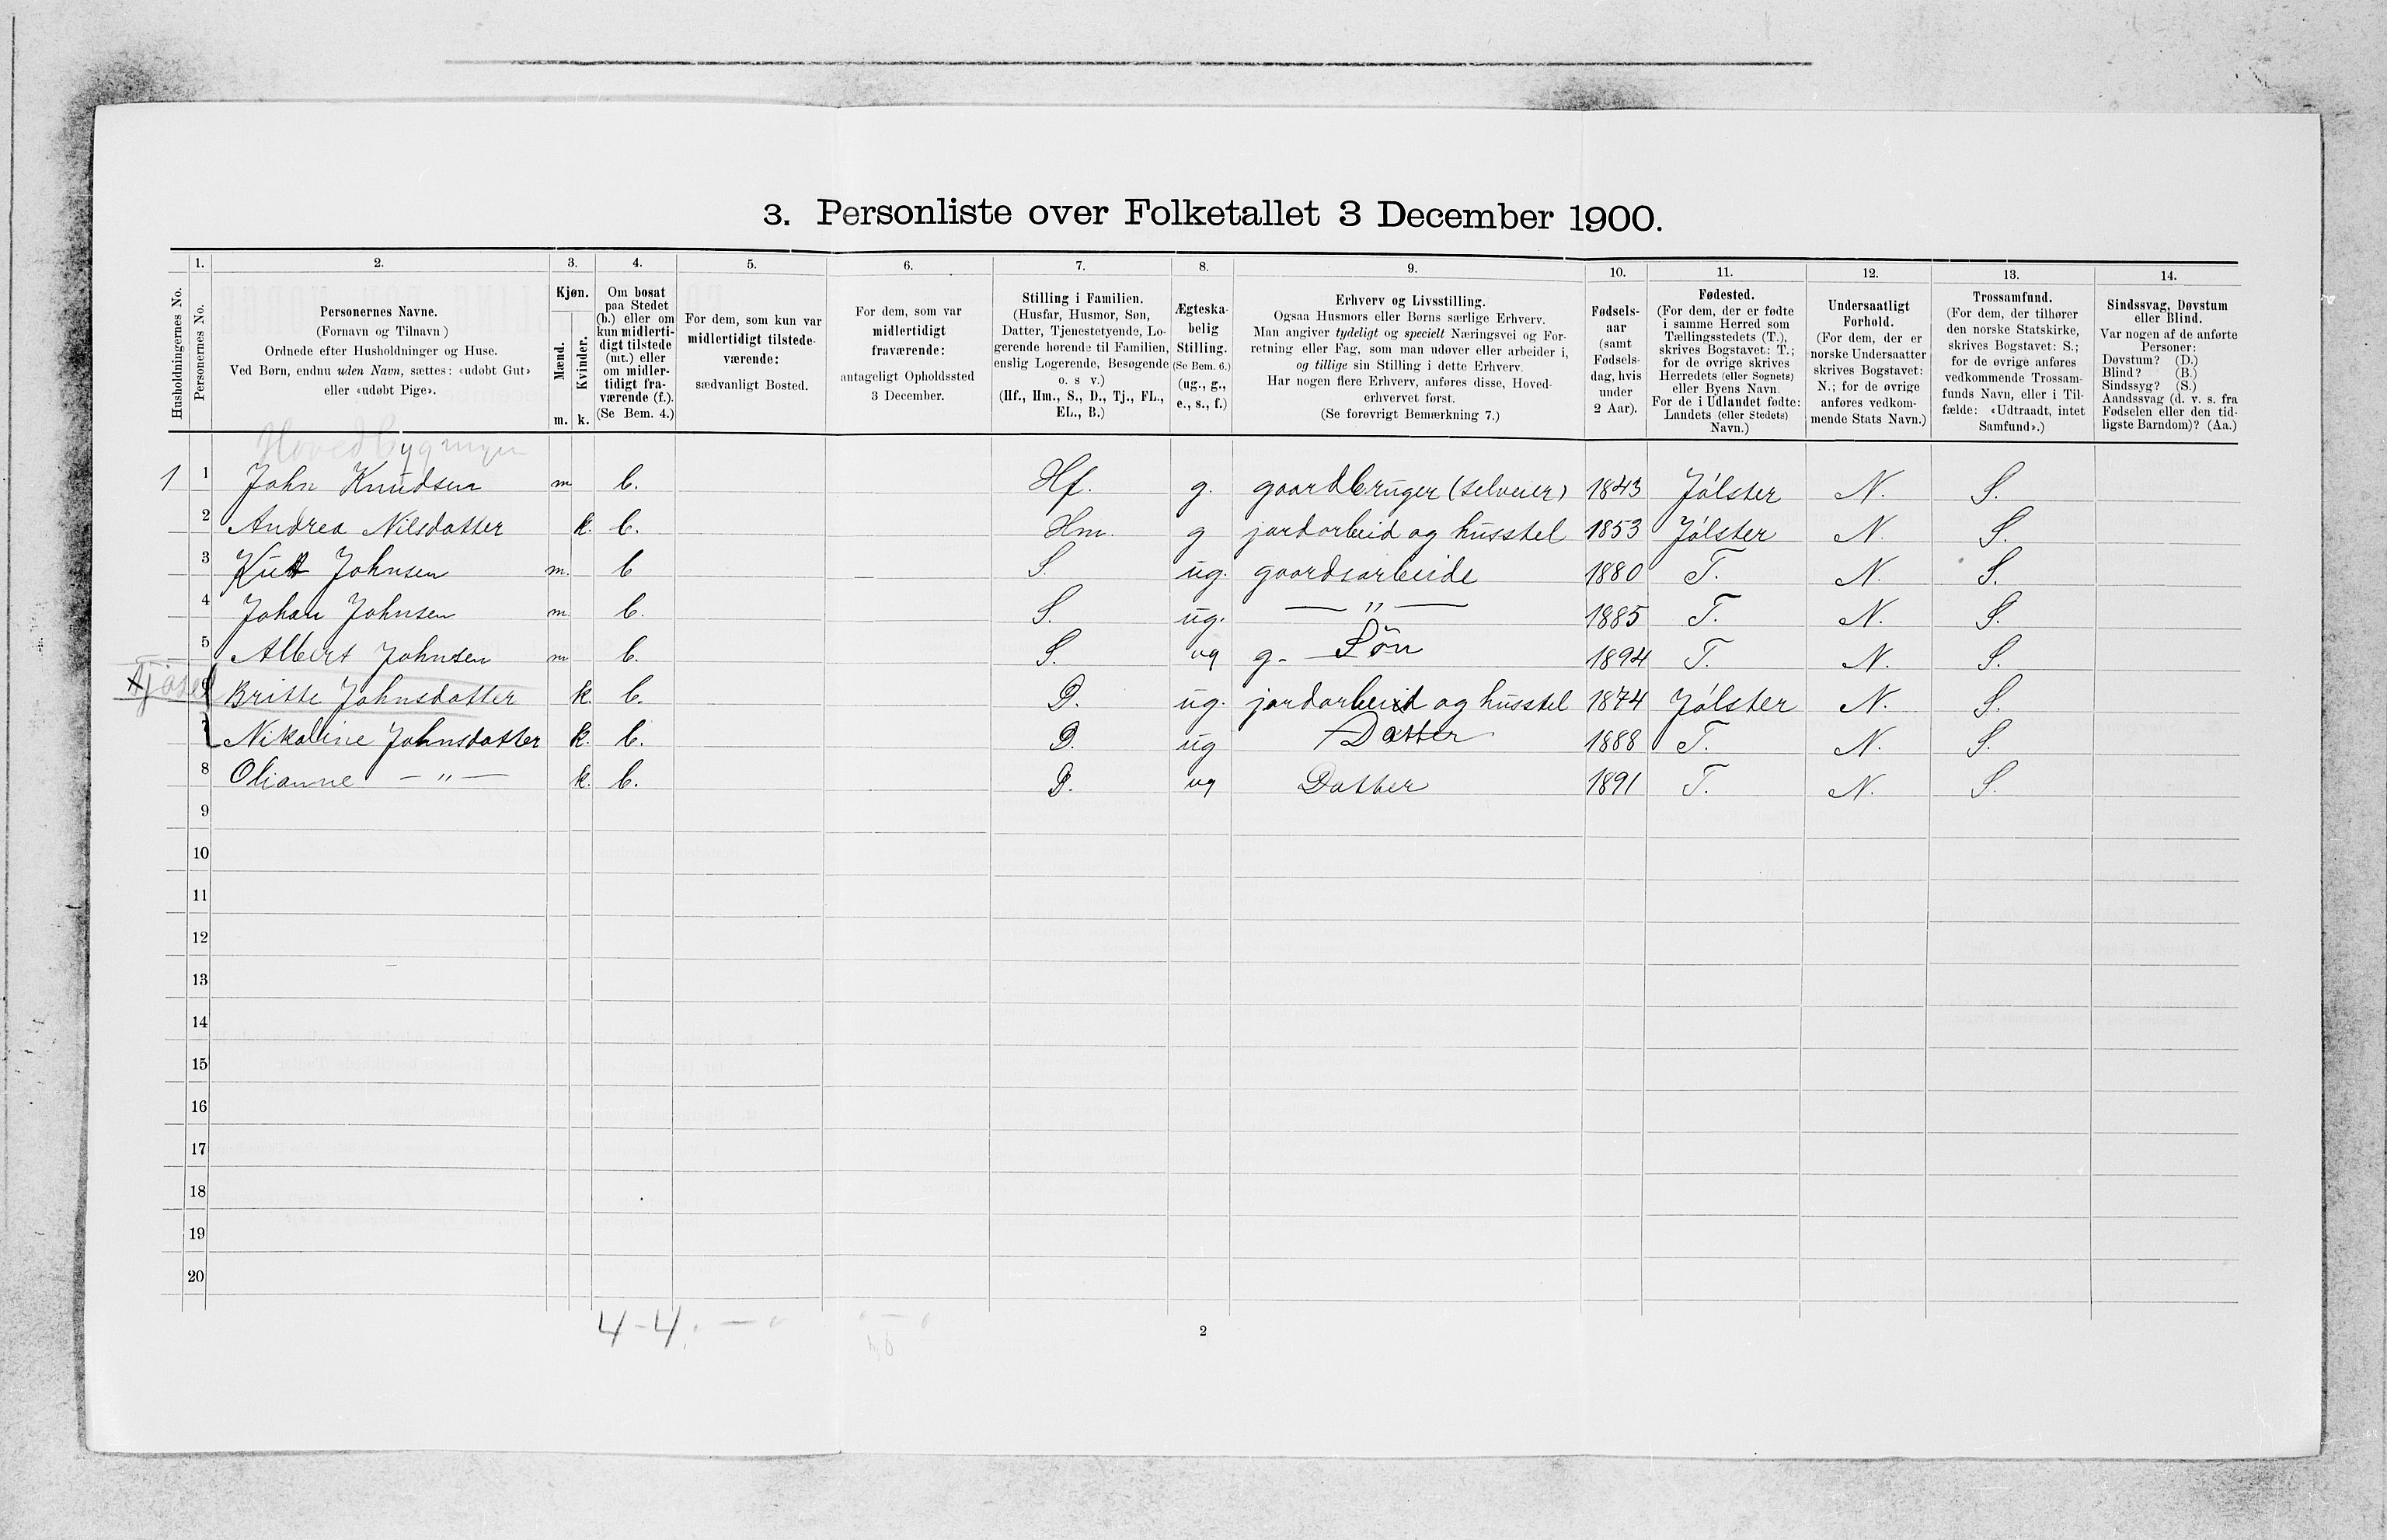 3. Personliste over Folketallet 3 December 1900.
1. 2. 3. 4. 5. 6. 7. 8. 9. 10. 11. 12. 13. 14.
Husholdningernes No.
Personernes No.
Personernes Navne.
(Fornavn og Tilnavn)
Ordnede efter Husholdninger og Huse.
Ved Børn, endnu uden Navn, sættes: «udøbt Gut»
eller «udøbt Pige».
Kjøn.
Mænd.
Kvinder.
m. k.
Om bosat
paa Stedet
(b.) eller om
kun midlerti-
digt tilstede
(mt.) eller
om midler-
tidigt fra-
værende (f.).
(Se Bem. 4.)
For dem, som kun var
midlertidigt tilstede-
værende:
sædvanligt Bosted.
For dem, som var
midlertidigt
fraværende:
antageligt Opholdssted
3 December.
Stilling i Familien.
(Husfar, Husmor, Søn,
Datter, Tjenestetyende, Lo-
gerende hørende til Familien,
enslig Logerende, Besøgende
o. s v.)
(Hf., Hm., S., D., Tj., FL.,
EL., B.)
Ægteska-
belig
Stilling.
(Se Bem. 6.)
(ug., g.,
e., s., f.)
Erhverv og Livsstilling.
Ogsaa Husmors eller Børns særlige Erhverv.
Man angiver tydeligt og specielt Næringsvei og For-
retning eller Fag, som man udøver eller arbeider i,
og tillige sin Stilling i dette Erhverv.
Har nogen flere Erhverv, anføres disse, Hoved-
erhvervet først.
(Se forøvrigt Bemærkning 7.)
Fødsels-
aar
(samt
Fødsels-
dag, hvis
under
2 Aar).
Fødested.
(For dem, der er fødte
i samme Herred som
Tællingsstedets (T.),
skrives Bogstavet: T.;
for de øvrige skrives
Herredets (eller Sognets)
eller Byens Navn.
For de i Udlandet fødte:
Landets (eller Stedets)
Navn.)
Undersaatligt
Forhold.
(For dem, der er
norske Undersaatter
skrives Bogstavet:
N.; for de øvrige
anføres vedkom-
mende Stats Navn.)
Trossamfund.
(For dem, der tilhører
den norske Statskirke,
skrives Bogstavet: S.;
for de øvrige anføres
vedkommende Trossam-
funds Navn, eller i Til-
fælde: «Udtraadt, intet
Samfund».)
Sindssvag, Døvstum
eller Blind.
Var nogen af de anførte
Personer:
Døvstum? (D.)
Blind? (B.)
Sindssyg? (S.)
Aandssvag (d. v. s. fra
Fødselen eller den tid-
ligste Barndom)? (Aa.)
Hovedbygningen
1 1 John Knudsen m b. Hf. g. gaardbruger (selveier) 1843 Jølster N. S.
2 Andrea Nilsdatter k. b. Hm. g jordarbeid og husstel 1853 Jølster N. S.
3 Johnsen m. b S. ug. gaardsarbeide 1880 T. N. S.
4 Johan Johnsen m b. S. ug. — " — 1885 T. N. S.
5 Albert Johnsen m b. S. ug g. Søn 1894 T. N. S.
6 Britte Johnsdatter k. b. D. ug. jordarbeid og husstel 1874 Jølster N. S.
7 Nikoline Johnsdatter k. b. D. ug Datter 1888 T. N. S.
8 Olianne — " — k. b. D. ug Datter 1891 T. N. S.
9
10
11
12
13
14
15
16
17
18
19
20
4-4.
2